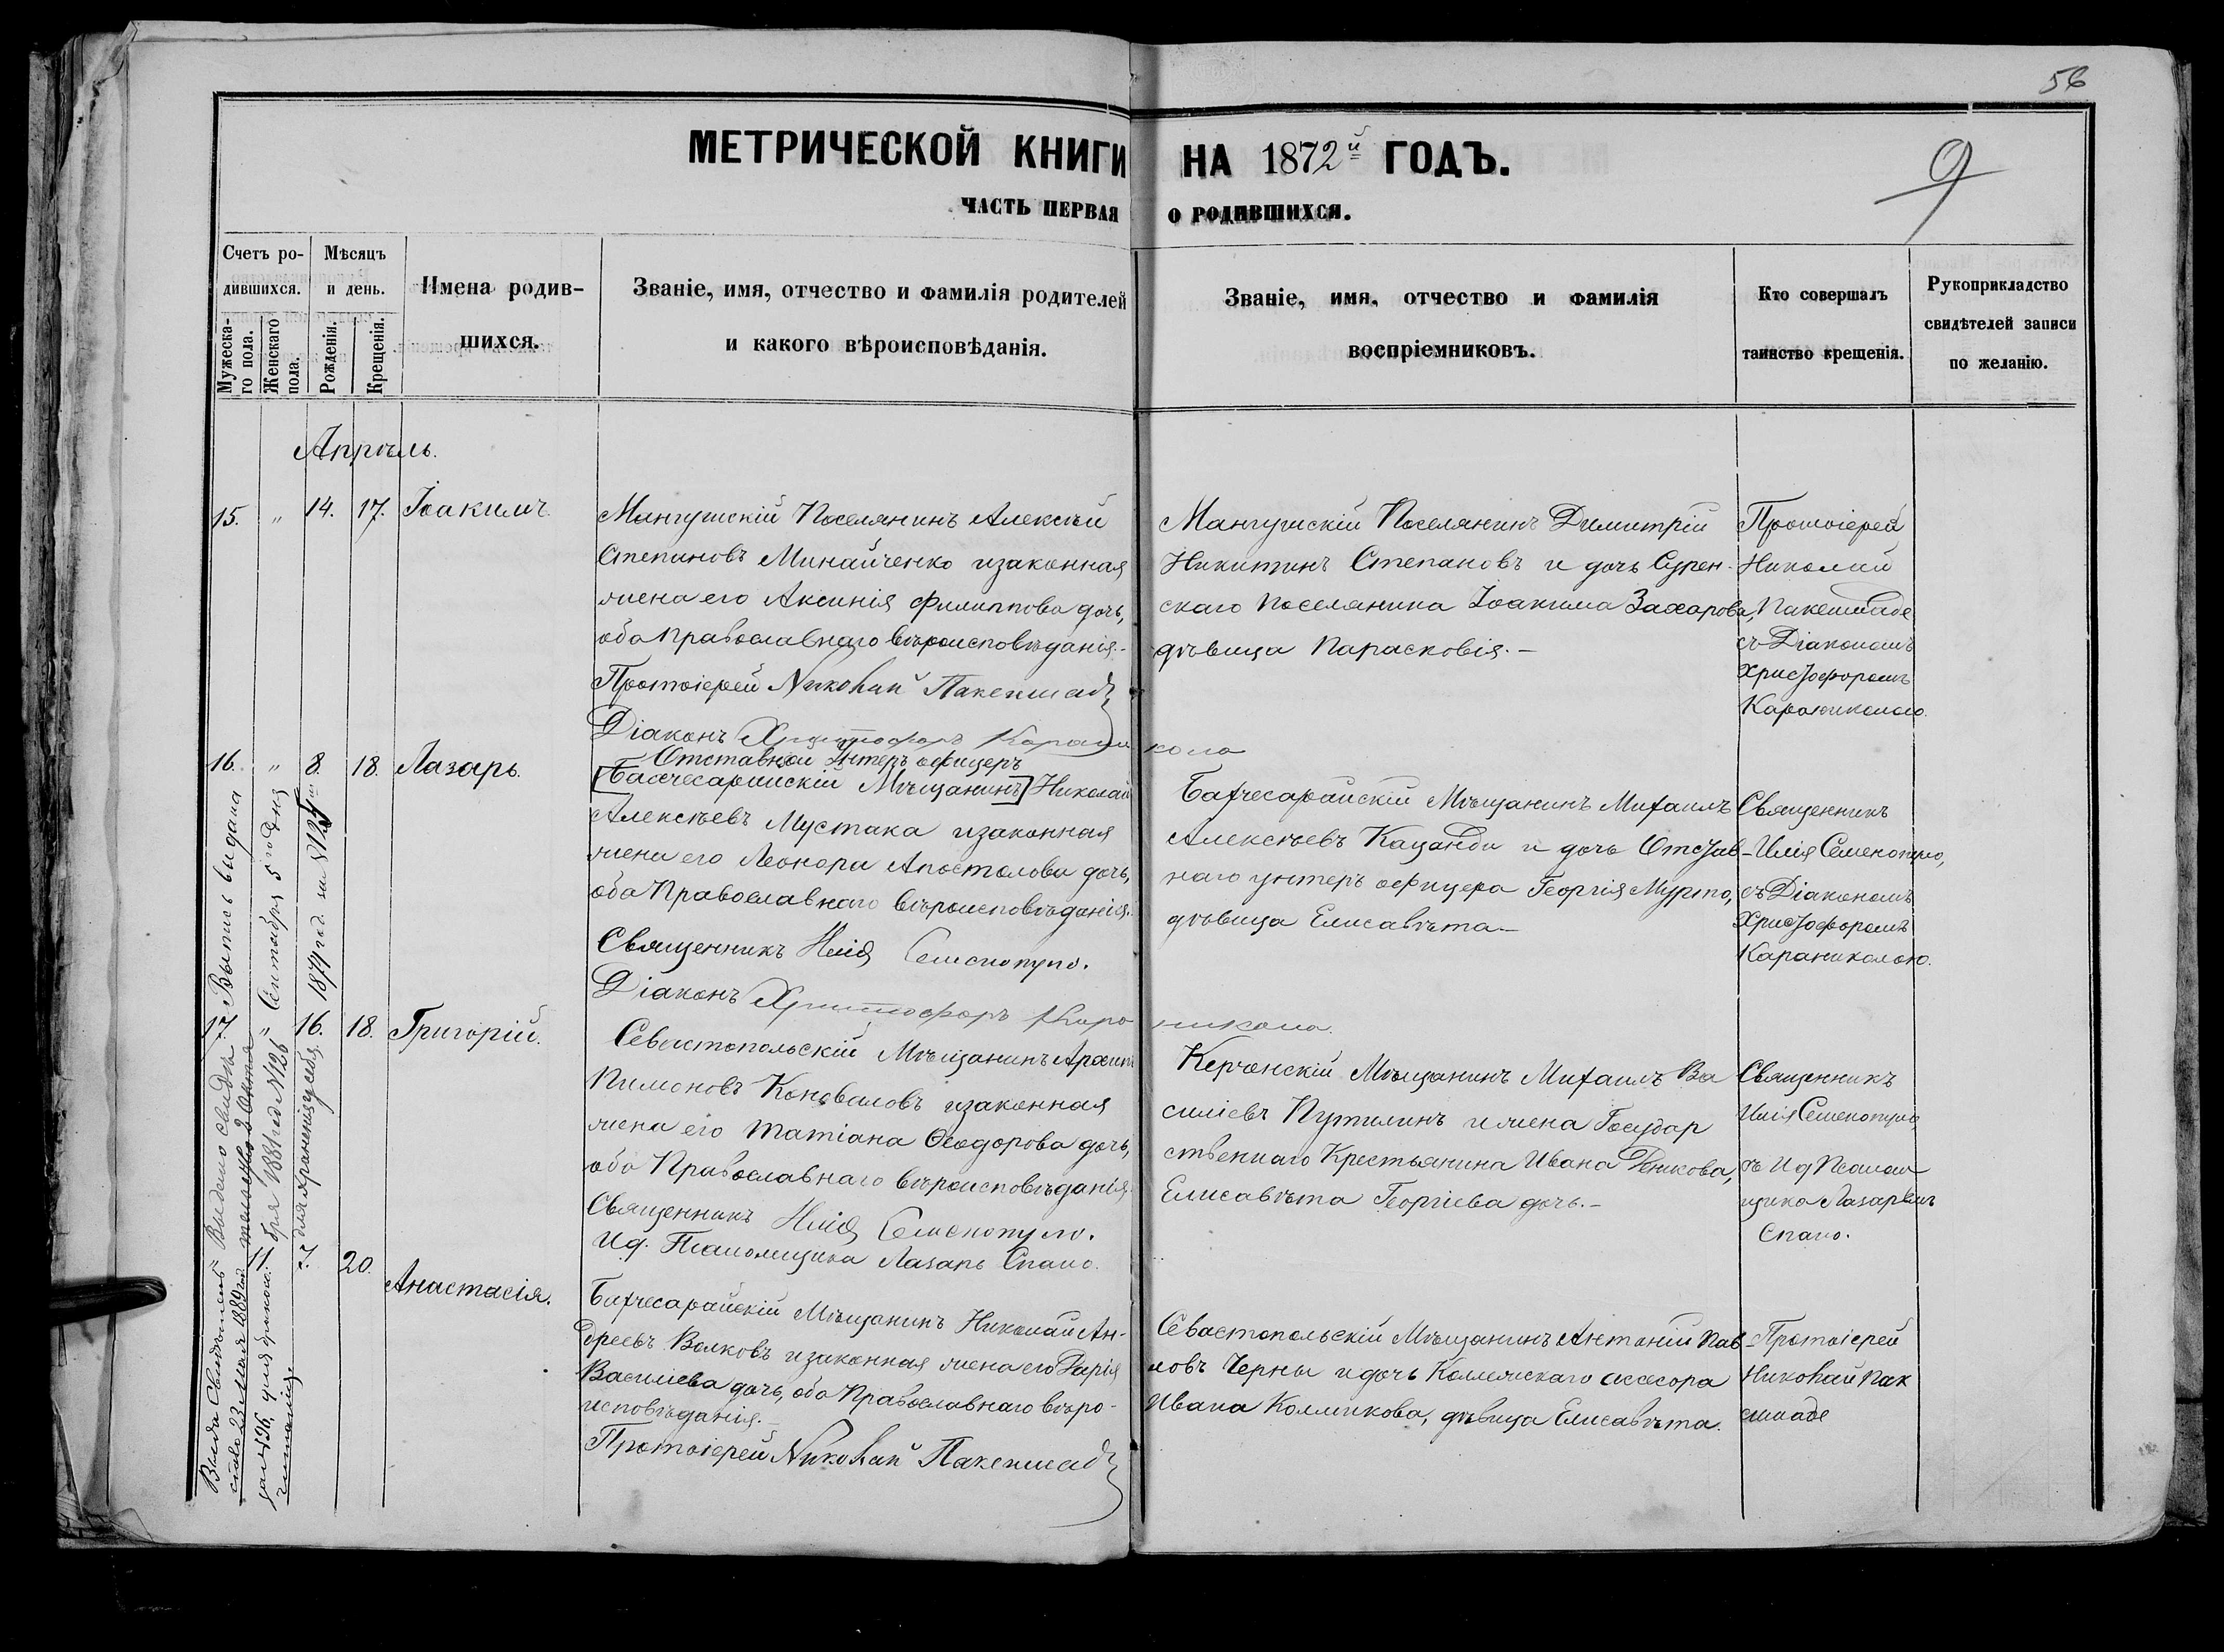 56
МЕТРИЧЕСКОЙ КНИГИ НА 1872й ГОДЪ.
9
ЧАСТЬ ПЕРВАЯ О РОДИВШИХСЯ.
Счетъ ро-
дившихся.
Мужеска-
го пола.
Женскаго
пола.
Мѣсяцъ
и день.
Рожденія.
Крещенія.
Имена родив-
шихся.
Званіе, имя, отчество и фамилія родителей
и какого вѣроисповѣданія.
Званіе, имя, отчество и фамилія
воспріемниковъ.
Кто совершалъ
таинство крещенія.
Рукоприкладство
свидѣтелей записи
по желанію.
Апрѣль.
15. " 14. 17. Іоакимъ
Мангушскій Поселянинъ Алексѣй
Степановъ Минайченко изаконная
жена его Аксинія Филиппова дочь,
оба Православнаго вѣроисповѣданія.-
Протоіерей Николай Пакекшадъ
Діаконъ Христофоръ Караникола
Мангушскій Поселянинъ Димитрій
Никитинъ Степановъ и дочь Сурен-
скаго Поселянина Іоакима Захарова,
дѣвица Парасковія.-
Протоіерей
Николай
съ Діакономъ
Христофоромъ
Караниколою.
16. " 8. 18. Лазарь.
Отставной Унтеръ офицеръ
[Бахчесарайскій Мѣщанинъ] Николай
Алексѣевъ Мустака изаконная
жена его Леонора Апостолова дочь,
оба Православнаго вѣроисповѣданія.
Священникъ Илія Семенопуло.
Діаконъ Христофоръ Караникола.
Бахчесарайскій Мѣщанинъ Михаилъ
Алексѣевъ Кацанди и дочь Отстав-
наго унтеръ офицера Георгія Мурто,
дѣвица Елисавѣта.-
Священникъ
Илія Семенопуло,
съ Діакономъ
Христофоромъ
Караниколою.
17. " 16. 18. Григорій.
Севастопольскій Мѣщанинъ Архипъ
Пимоновъ Коноваловъ изаконная
жена его Татіана Ѳеодорова дочь,
оба Православнаго вѣроисповѣданія.
Священникъ Илія Семенопуло.
И.д. Псаломщика Лазарь Спано.
Керченскій Мѣщанинъ Михаилъ Ва
силіевъ Путилинъ и жена Государ
ственнаго Крестьянина Ивана Деникова,
Елисавѣта Георгіева дочь.-
Священникъ
Илія Семенопуло,
съ И д Псалом
щика Лазаремъ
Спано.
" 11. 7. 20. Анастасія.
Бахчесарайскій Мѣщанинъ Николай Ан-
дреевъ Волковъ изаконная жена его Дарія
Василіева дочь, оба Православнаго вѣро-
исповѣданія.-
Протоіерей Николай Пакекшадъ
Севастопольскій Мѣщанинъ Антоній Пав-
ловъ Черны и дочь Коллежскаго ассесора
Ивана Колмикова, дѣвица Елисавѣта.
Протоіерей
Николай Пак
Выпись выдана
Сентября 5го дня
1874 год за №125
Выдано свидѣ
1888 год №126
Выда Свидѣтель
ство 23 Мая 1889 год
за №196